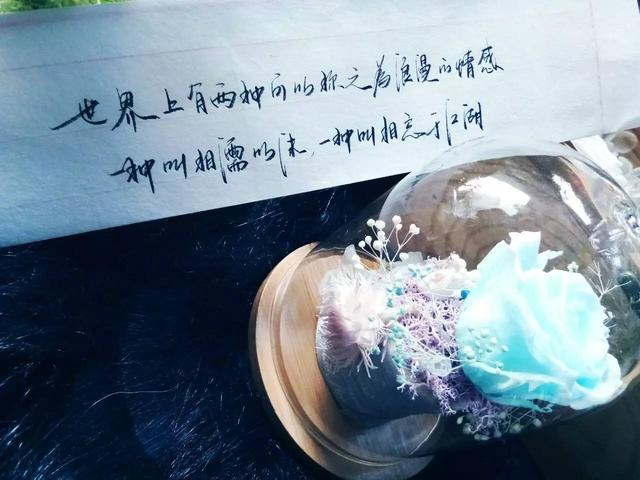 世界上有两种可以称之为浪漫的情感
一种叫相濡以沫,一种叫相忘于江湖